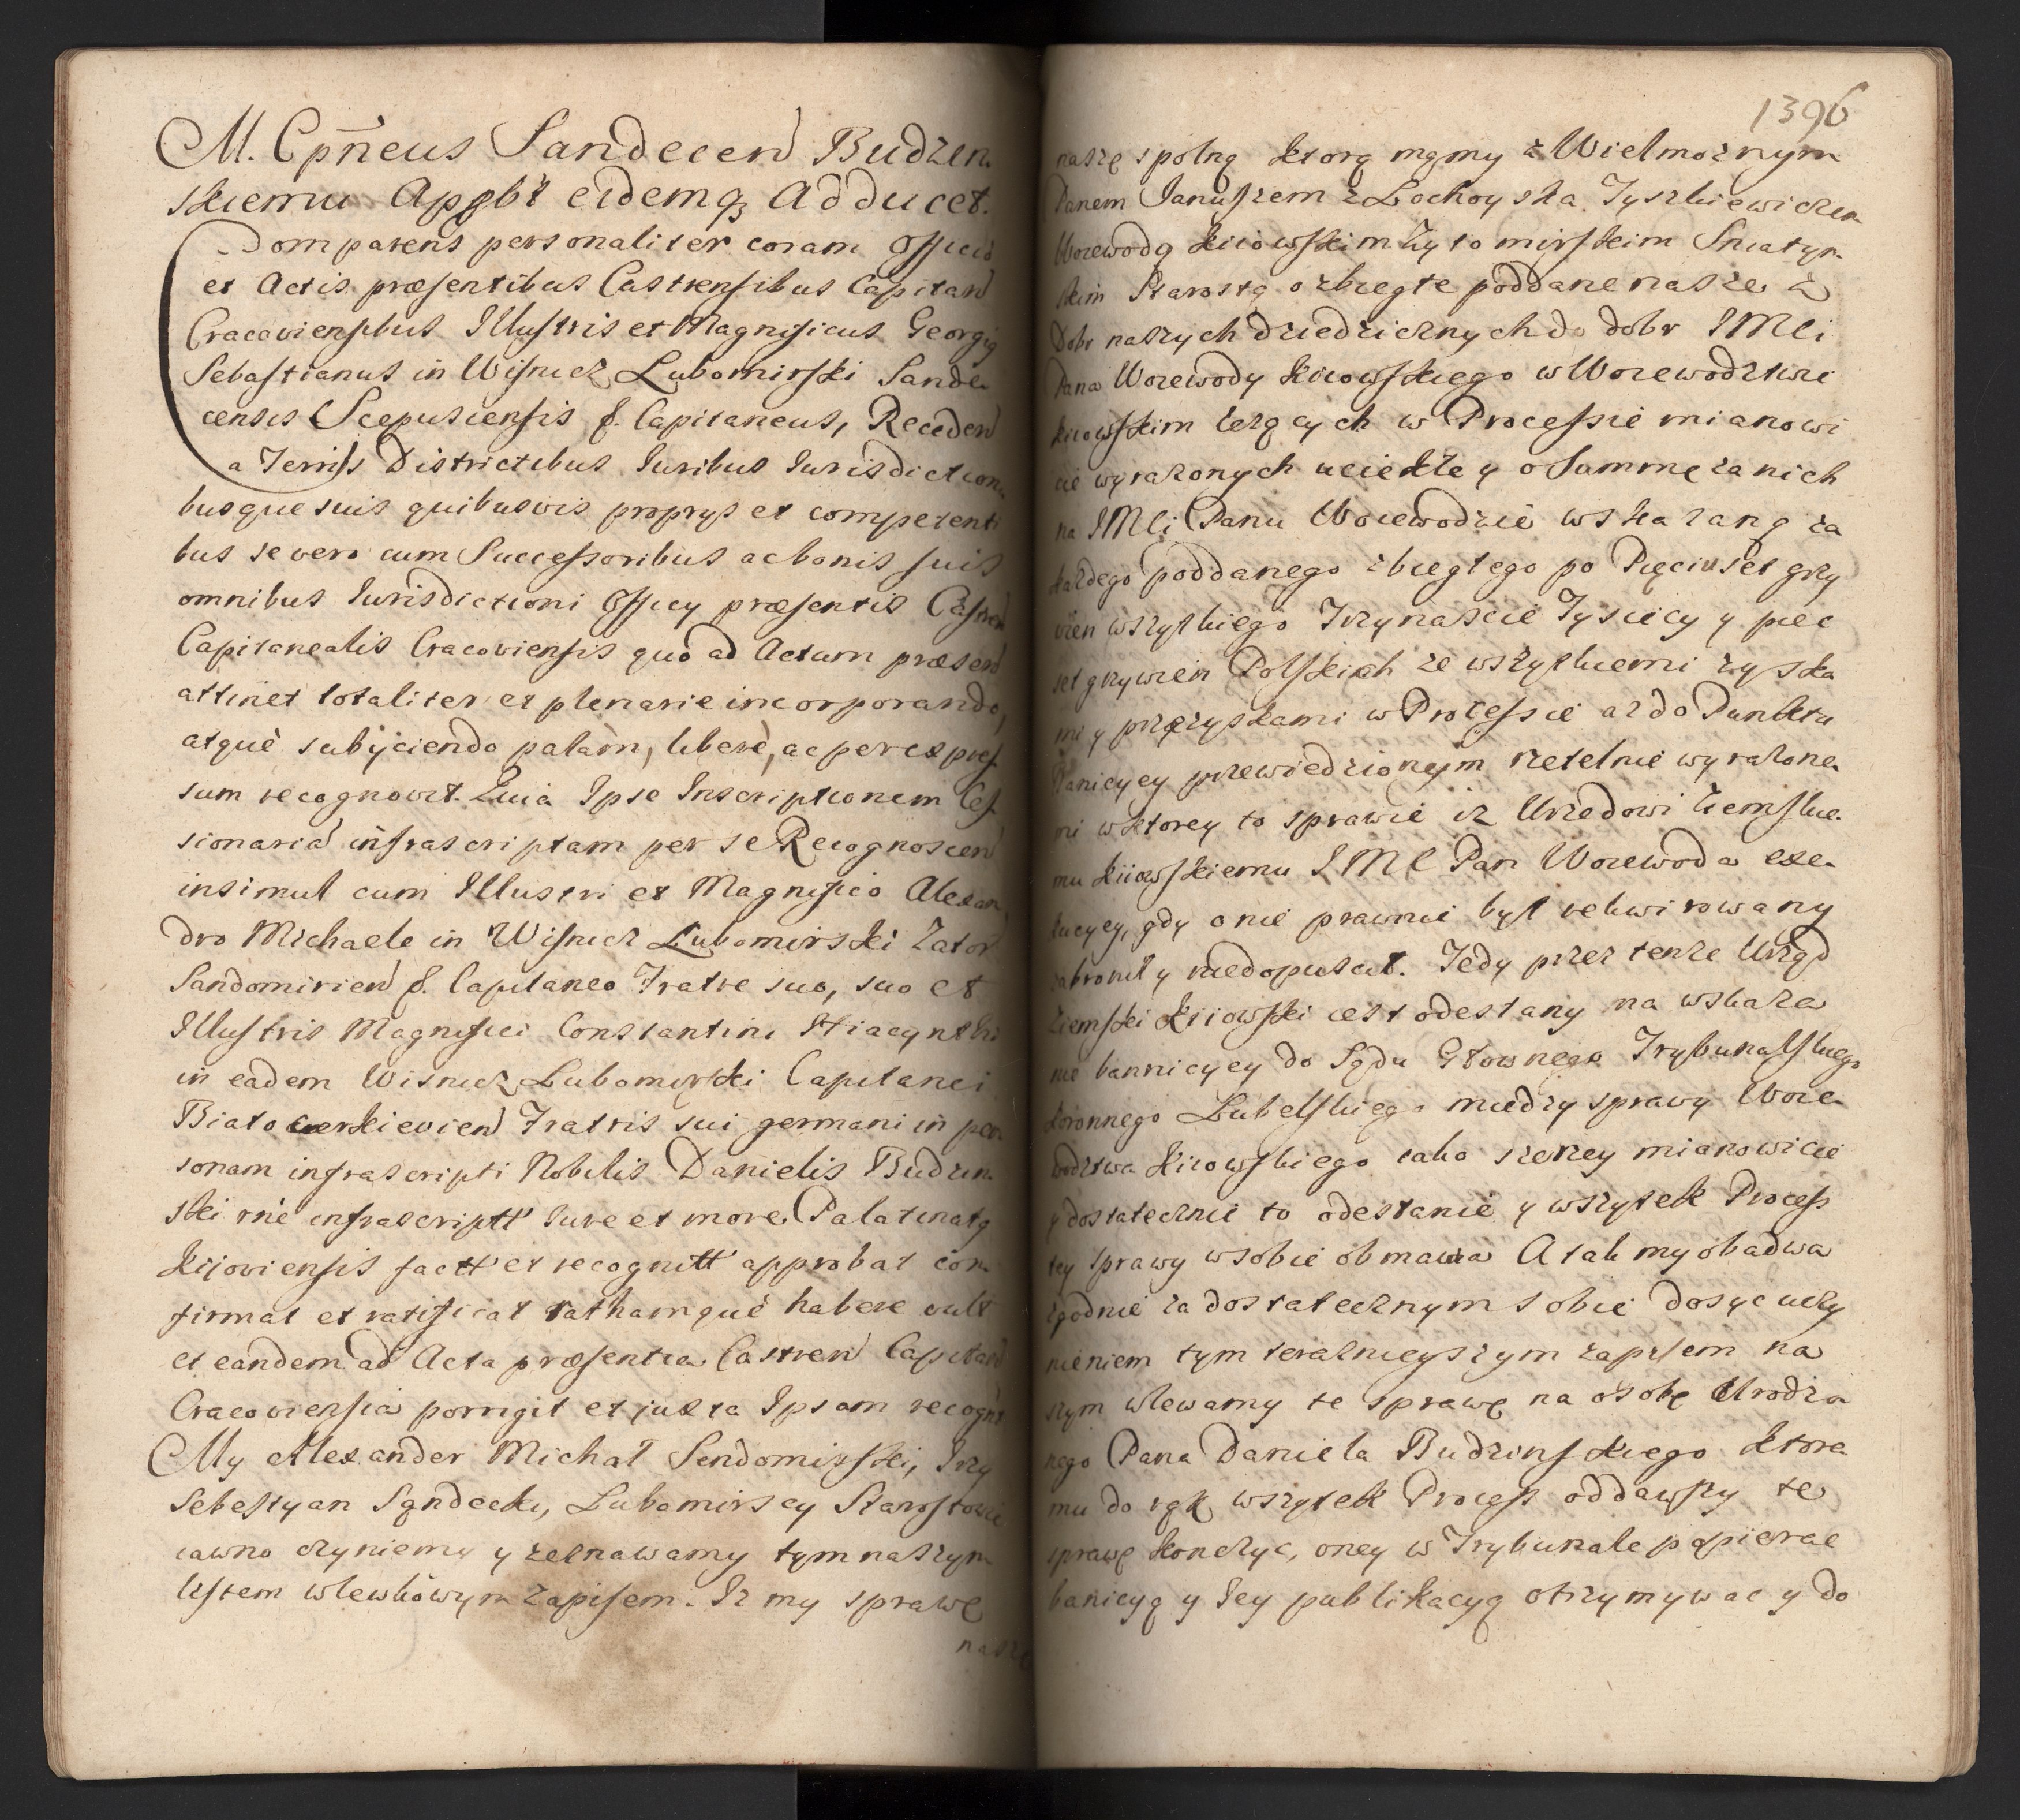 M. Cpn̄eus Sandecen Budzen.
skiemu Appbt eidemqz adducet.
Comparens personaliter coram Officio
et Actis præsentibus Castrensibus Capitan
Cracoviensibus Illustris et Magnificus Georgig
Sebastianus in Wisnicz Lubomirski Sande
censis Scepusiensis &. Capitaneus, Receden
a Terris Districtibus Iuribus Iurisdiction
busque suis quibusvis proprys et competenti
bus se vero cum Successoribus ac bonis suis
omnibus Iurisdictioni Officy præsentis Castren
Capitanealis Cracoviensis quo ad Actum præsen
attinet totaliter et plenarie incorporando,
atquè subijciendo palam, liberè, ac per expres
sum recognovit. Quia Ipse Inscriptionem Ces
sionaria infrascriptam per se Recognoscen
insimul cum Illustri et Magnifico Alexan
dro Michaele in Wisnicz Lubomirski Zator
Sandomirien &. Capitaneo Fratre suo, suo et
Illustris Magnifici Constantini Hiacynthi
in eadem Wisnicz Lubomirski Capitanei
Biatocerkievien Fratris sui germani in per
sonam infrascripti Nobilis Danielis Budzin
ski rnè infrascriptt Iure et more Palatinatg
Kijoviensis factt et recognitt approbat con
firmat et ratificat rathamquè habere vult
et eandem ad Acta præsentia Castren Capitan
Cracoviensia porrigit et juxta Ipsam recognt
My Alexander Michał Sendomirski, Irzy
Sebestyan Sądecki, Lubomirscy Starostowie
iawno czyniemy y zeznawamy tym naszym
listem wlewkowym Zapisem. Iz my sprawę
naszę
1396
naszę spolną ktorą mamy z Wielmoznym
Panem Januszem z Lochoyska Tyszkiewiczem
Woiewodą kiiowskim Zytomirskim Sniatyn.
skim Starostą o zbiegłe poddane nasze z
Dobr naszych dziedzicznych do dobr IMCi
Pana Woiewody kiiowskiego w Woiewodztwie
kiiowskim lezących w Processie mianowi
cie wyrazonych uciekłe y o Summę za nich
na IMCi Panu Woiewodzie wskazaną za
kazdego poddanego zbiegłego po Pięciuset grzy
wien wszytkiego Trzynascie Tysięcy y piec
set grzywien Polskich ze wszytkiemi zyska
mi y przezyskami w Processie az do Punktu
Banicyey przewiedzionejm rzetelnie wyrazone
mi w ktorey to sprawie iz Urzedowi Ziemskie
mu kiiowskiemu IMC Pan Woiewoda exe
kucyey, gdy o nie prawnie był rekwirowany
zabronił y niedopuscił. Tedy przez tenze Urząd
Ziemski Kiiowski iest odesłany na wskaza
nie bannicyey do Sądu Głownego Trybunalskiego
koronnego Lubelskiego miedzy sprawy Woie
wodztwa kiiowskiego iako szerzey mianowicie
y dostatecznie to odesłanie y wszytek Process
tey sprawy w sobie obmawia A tak my obadwa
zgodnie za dostatecznym sobie dosyc uczy
nieniem tym teraznieyszym zapisem na
szym wlewamy te sprawę na osobę Urodzo
nego Pana Daniela Budzinskiego ktore
mu do rąk wszytek Process oddawszy te
sprawę konczyc, oney w Trybunale popierac
banicyą y Jey publikacyą otrzymywac y do